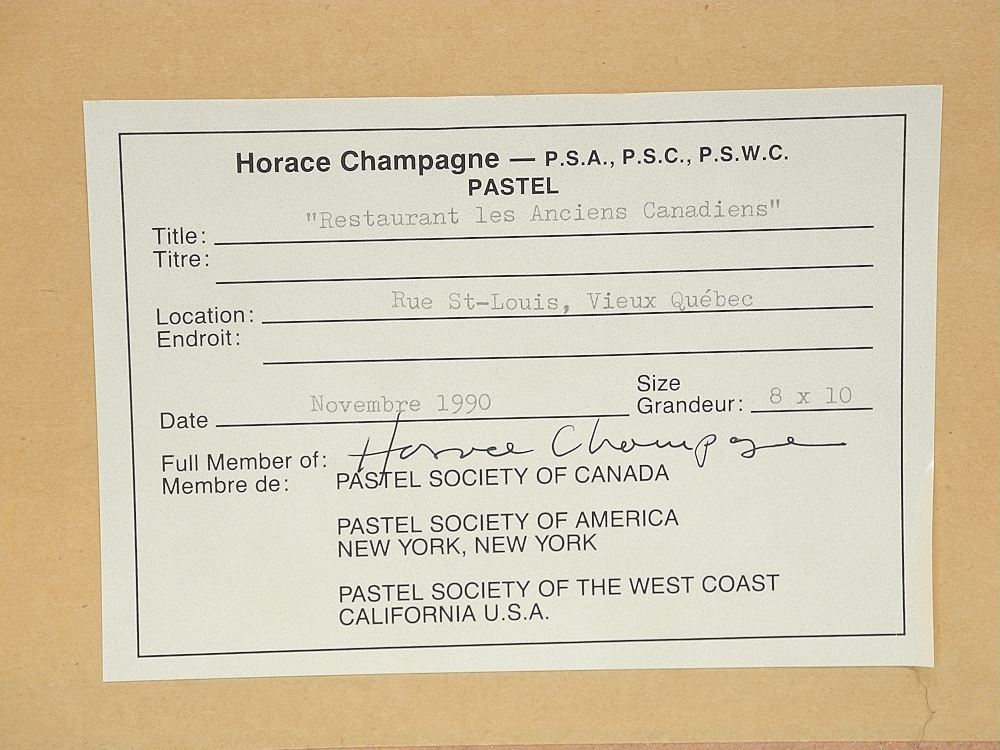 Horace Champagne — P.S.A., P.S.C., P.S.W.C.
PASTEL
Title: "Restaurant les Anciens Canadiens"
Titre:
Location: Rue St-Louis, Vieux Québec
Endroit:
Date Novembre 1990 Size Grandeur: 8 x 10
Horace Champagne
Full Member of:
Membre de: PASTEL SOCIETY OF CANADA
PASTEL SOCIETY OF AMERICA
NEW YORK, NEW YORK
PASTEL SOCIETY OF THE WEST COAST
CALIFORNIA U.S.A.